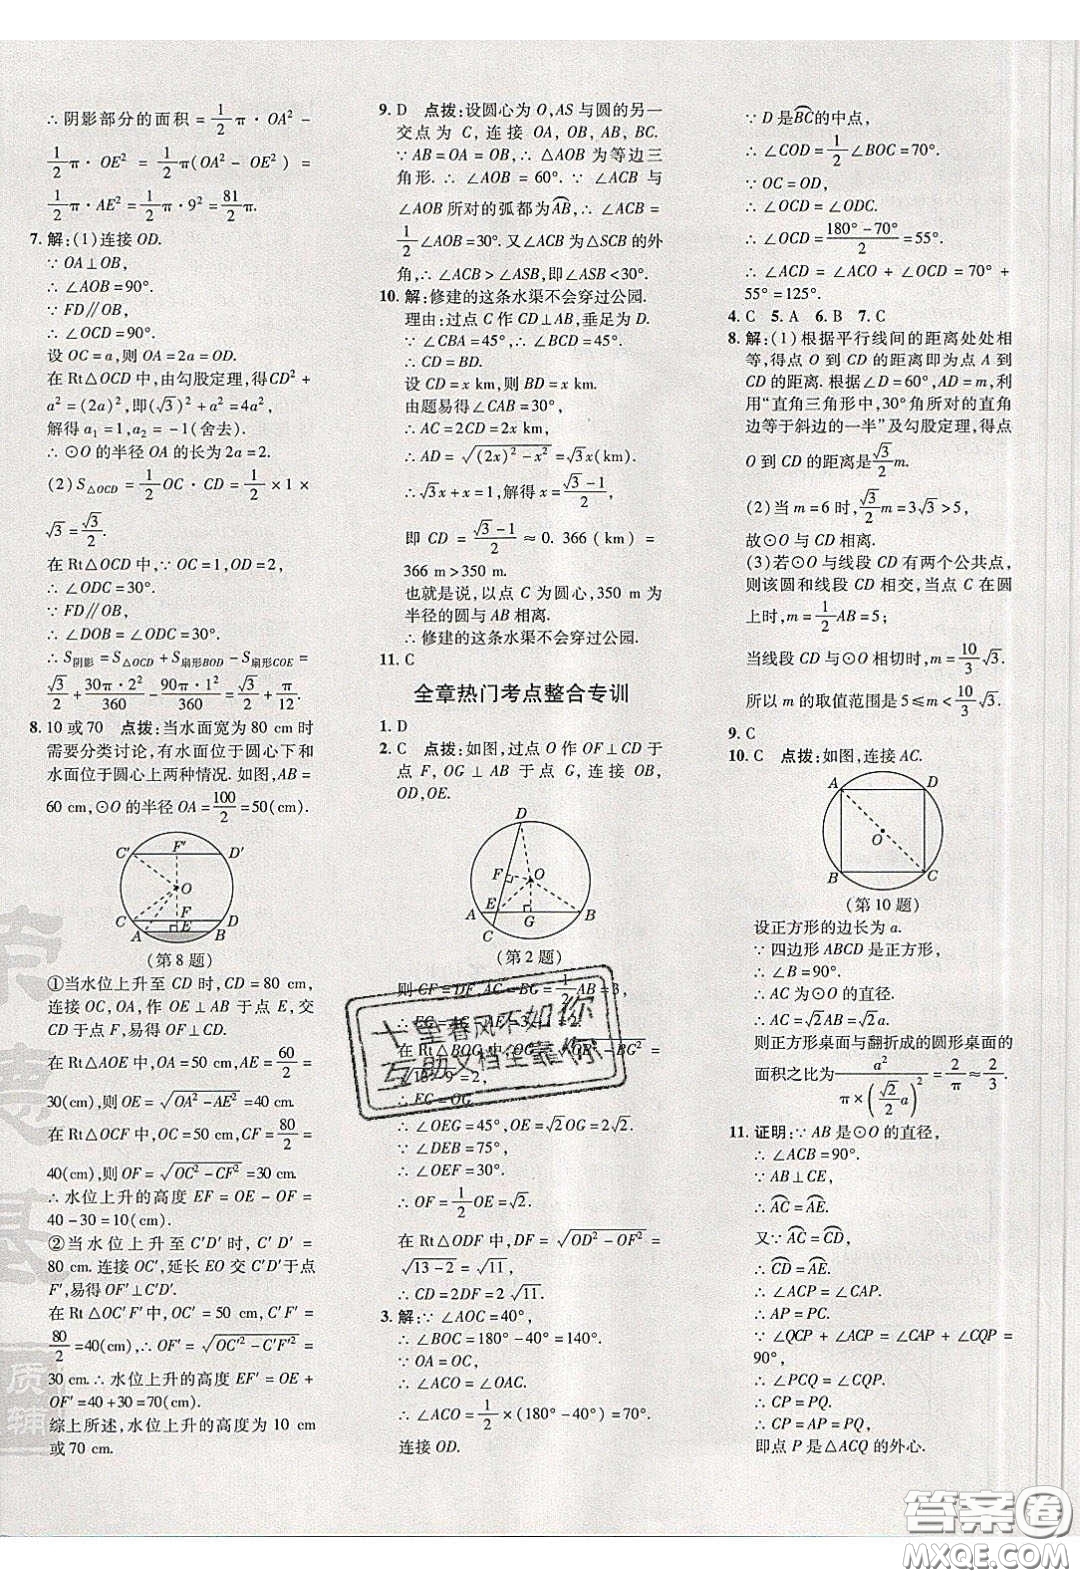 ∴阴影部分的面积=1/2π·OA²-
1/2π·OE²=1/2π(OA²-OE²)=
1/2π·AE²=1/2π·9²=81/2π.
7. 解:(1)连接 OD.
∵OA⊥OB,
∴∠AOB=90°.
∵FD∥OB,
∴∠OCD=90°.
设 OC=a,则 OA=2a=OD.
在 Rt△OCD 中,由勾股定理,得CD²+
a²=(2a)²,即(√3)²+a²=4a²,
解得 a₁=1,a₂=-1(舍去).
∴⊙O 的半径 OA 的长为 2a=2.
(2)S△OCD=1/2OC·CD=1/2×1×
√3=√3/2.
在 Rt△OCD 中,∵OC=1,OD=2,
∴∠ODC=30°.
∵FD∥OB,
∴∠DOB=∠ODC=30°.
∴S阴影=S△OCD+S扇形BOD-S扇形COE=
√3/2+30π·2²/360-90π·1²/360=√3/2+π/12.
8. 10 或 70 点拨:当水面宽为 80 cm 时
需要分类讨论,有水面位于圆心下和
水面位于圆心上两种情况. 如图,AB=
60 cm,⊙O 的半径 OA=100/2=50(cm).
C′ F′ D′
O
C F D
A E B
(第 8 题)
①当水位上升至 CD 时,CD=80 cm,
连接 OC,OA,作 OE⊥AB 于点 E,交
CD 于点 F,易得 OF⊥CD.
在 Rt△AOE 中,OA=50 cm,AE=60/2=
30(cm),则 OE=√(OA²-AE²)=40 cm.
在 Rt△OCF 中,OC=50 cm,CF=80/2=
40(cm),则 OF=√(OC²-CF²)=30 cm.
∴水位上升的高度 EF=OE-OF=
40-30=10(cm).
②当水位上升至 C′D′时,C′D′=
80 cm. 连接 OC′,延长 EO 交 C′D′于点
F′,易得 OF′⊥C′D′.
在 Rt△OC′F′中,OC′=50 cm,C′F′=
80/2=40(cm),∴OF′=√(OC′²-C′F′²)=
30 cm. ∴水位上升的高度 EF′=OE+
OF′=40+30=70(cm).
综上所述,水位上升的高度为 10 cm
或 70 cm.
9. D 点拨:设圆心为 O,AS 与圆的另一
交点为 C,连接 OA,OB,AB,BC.
∵AB=OA=OB,∴△AOB 为等边三
角形. ∴∠AOB=60°. ∵∠ACB 与
∠AOB 所对的弧都为AB,∴∠ACB=
1/2∠AOB=30°. 又∠ACB 为△SCB 的外
角,∴∠ACB>∠ASB,即∠ASB<30°.
10. 解:修建的这条水渠不会穿过公园.
理由:过点 C 作 CD⊥AB,垂足为 D.
∵∠CBA=45°,
∴CD=BD.
设 CD=x km,则 BD=x km.
由题易得∠CAB=30°,
∴AC=2CD=2x km.
∴AD=√((2x)²-x²)=√3x km.
∴√3x+x=1,解得 x=(√3-1)/2,
即 CD=(√3-1)/2≈0.366(km)=
366 m>350 m.
也就是说,以点 C 为圆心,350 m 为
半径的圆与 AB 相离.
∴修建的这条水渠不会穿过公园.
11. C
全章热门考点整合专训
1. D
2. C 点拨:如图,过点 O 作 OF⊥CD 于
点 F,OG⊥AB 于点 G,连接 OB,
OD,OE.
D
F O
A E G B
C
(第 2 题)
则 CF=DF,AG=BG=1/2AB=3,
在 Rt△BOG 中,OG=√(OB²-BG²)=
∴EG=OG.
∴∠OEG=45°,OE=√2OG=2√2.
∵∠DEB=75°,
∴∠OEF=30°.
∴OF=1/2OE=√2.
在 Rt△ODF 中,DF=√(OD²-OF²)=
√(13-2)=√11,
∴CD=2DF=2√11.
3. 解:∵∠AOC=40°,
∴∠BOC=180°-40°=140°.
∵OA=OC,
∴∠ACO=∠OAC.
∴∠ACO=1/2×(180°-40°)=70°.
连接 OD.
十里春风不如你
互助文档全靠你
∵D 是BC的中点,
∴∠COD=1/2∠BOC=70°.
∵OC=OD,
∴∠OCD=∠ODC.
∴∠OCD=(180°-70°)/2=55°.
∴∠ACD=∠ACO+∠OCD=70°+
55°=125°.
4. C 5. A 6. B 7. C
8. 解:(1)根据平行线间的距离处处相
等,得点 O 到 CD 的距离即为点 A 到
CD 的距离. 根据∠D=60°,AD=m,利
用“直角三角形中,30°角所对的直角
边等于斜边的一半”及勾股定理,得点
O 到 CD 的距离是√3/2m.
(2)当 m=6 时,√3/2m=3√3>5,
故⊙O 与 CD 相离.
(3)若⊙O 与线段 CD 有两个公共点,
则该圆和线段 CD 相交,当点 C 在圆
上时,m=1/2AB=5;
当线段 CD 与⊙O 相切时,m=10/3√3.
所以 m 的取值范围是 5≤m<10/3√3.
9. C
10. C 点拨:如图,连接 AC.
A D
O
B C
(第 10 题)
设正方形的边长为 a.
∵四边形 ABCD 是正方形,
∴∠B=90°.
∴AC 为⊙O 的直径.
∴AC=√2AB=√2a.
则正方形桌面与翻折成的圆形桌面的
面积之比为a²/(π×(√2/2a)²)=2/π≈2/3.
11. 证明:∵AB 是⊙O 的直径,
∴∠ACB=90°.
∵AB⊥CE,
∴AC=AE.
又∵AC=CD,
∴CD=AE.
∴∠ACP=∠CAP.
∴AP=PC.
∵∠QCP+∠ACP=∠CQP+∠CAP=
90°,
∴∠QCP=∠CQP.
∴CP=PQ.
∴CP=AP=PQ,
即点 P 是△ACQ 的外心.
荣德基
质辅
答案卷
MXQE.COM